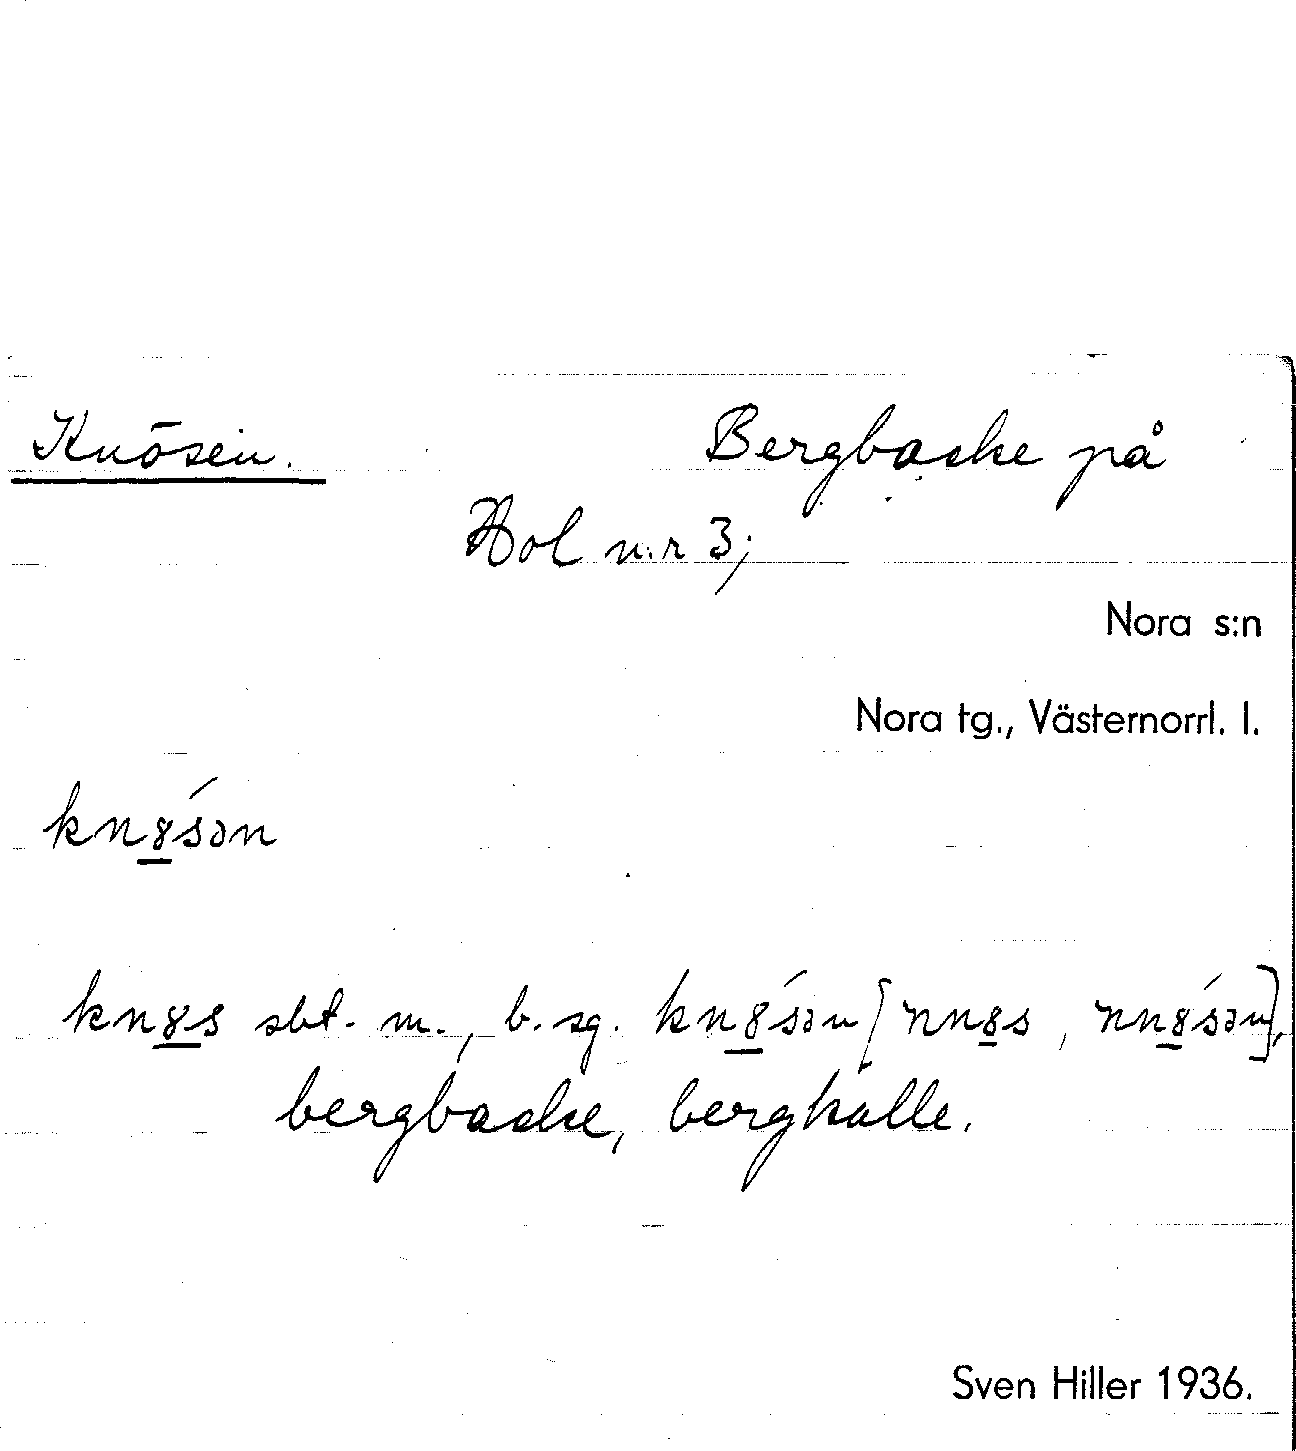 Knösen. Bergbacke på
Hol n:r 3;
Nora s:n
Nora tg., Västernorrl. l.
kn8́sən
kn8s sbt. m., b. sg. kn8́sən [nn8s, nn8́sən],
bergbacke, bergkulle.
Sven Hiller 1936.